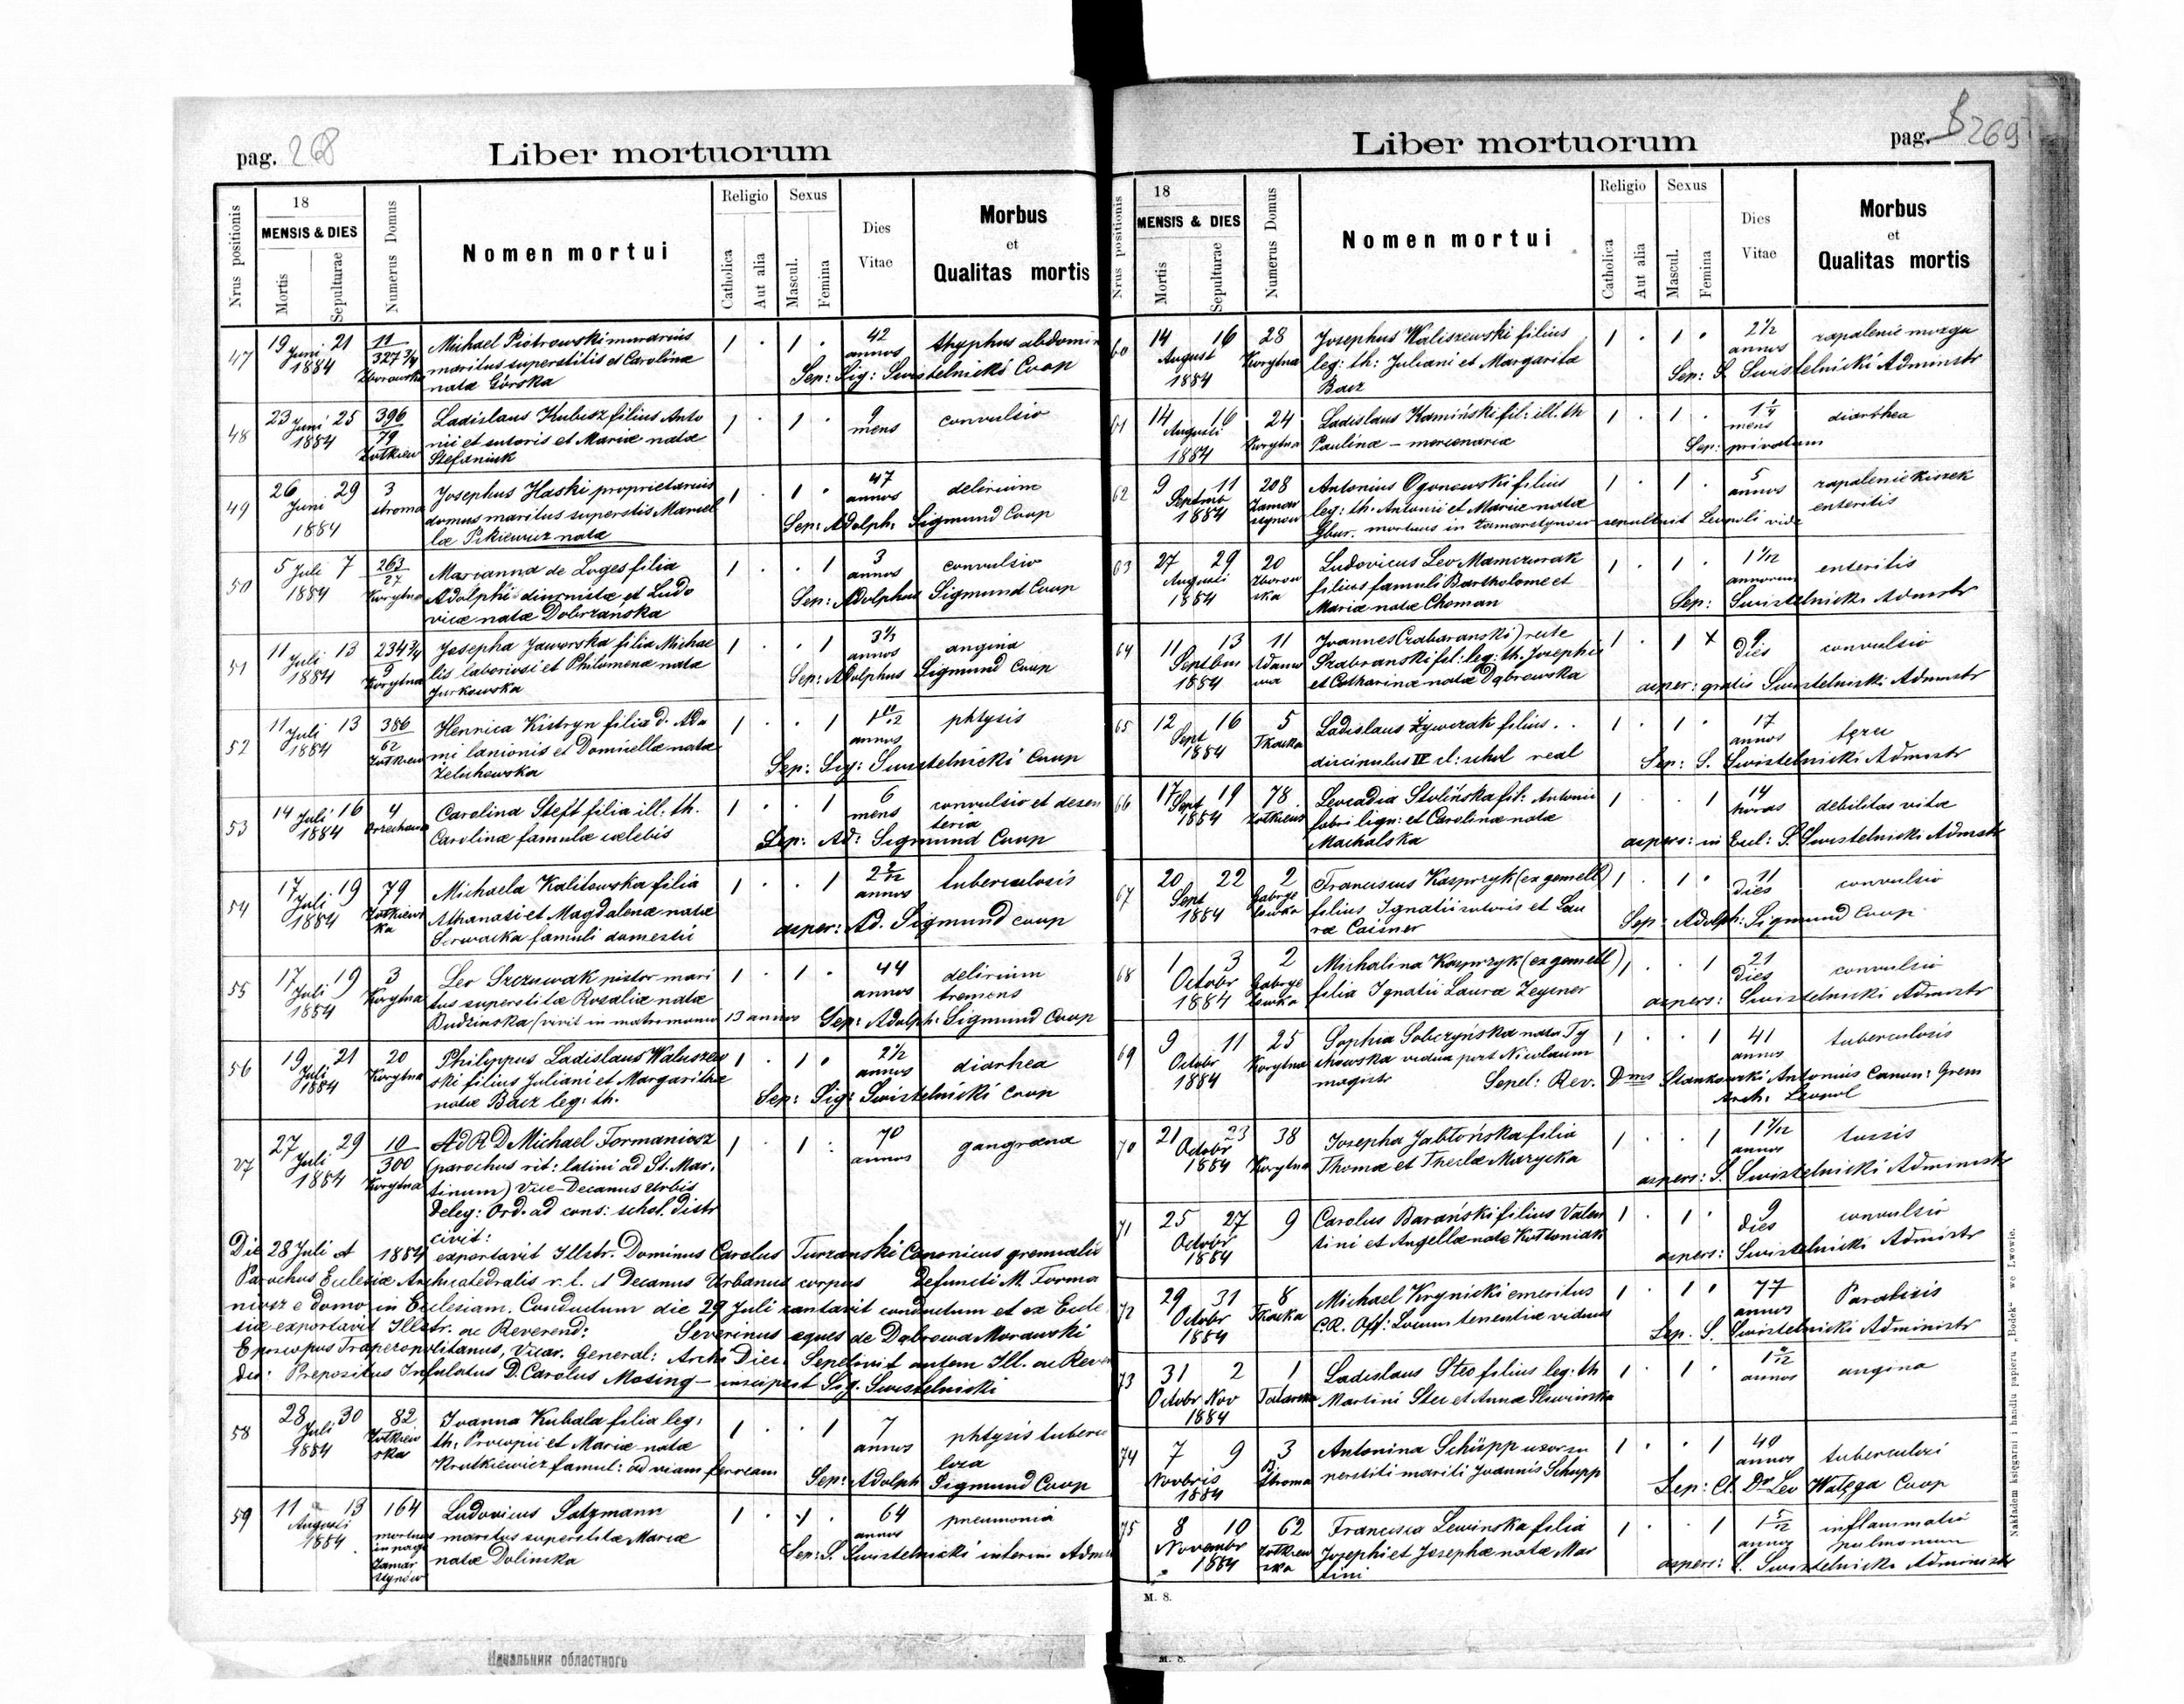 pag. 268
Liber mortuorum
Nrus positionis
18
MENSIS & DIES
Mortis
Sepulturae
Numerus Domus
Nomen mortui
Religio
Catholica
Aut alia
Sexus
Mascul.
Femina
Dies
Vitae
Morbus
et
Qualitas mortis
47 19 Juni 21 11 Michael Piotrowski murarius 1 . 1 . 42 thyphus abdomin
1884 327 3/4 maritus superstitis et Carolinæ annos
Zborowska natæ Górska Sep: Sig: Swistelnicki Coop
48 23 Juni 25 396 Ladislaus Kubisz filius Anto 1 . 1 . 9 convulsio
1884 79 nii et sutoris et Mariæ natæ mens
Żołkiew Stefaniuk
49 26 Juni 29 3 Josephus Haski proprietarius 1 . 1 . 47 delirium
stroma domus maritus superstis Marcel annos
1884 læ Pikiewicz natæ Sep: Adolph: Sigmund Coop
50 5 Juli 7 263 Marianna de Loges filia 1 . . 1 3 convulsio
1884 27 Adolphi diurnistæ et Ludo annos
Korytna vicæ natæ Dobrzańska Sep: Adolphus Sigmund Coop
51 11 Juli 13 234 3/4 Josepha Jaworska filia Michae 1 . . 1 3 1/3 angina
1884 9 lis laboriosi et Philomenæ natæ annos
Korytna Jurkowska Sep: Adolphus Sigmund Coop
52 11 Juli 13 386 Henrica Kistryn filia d. Ada 1 . . 1 1 11/12 phtysis
1884 62 mi lanionis et Domicellæ natæ annus
Żołkiew Żelichowska Sep: Sig: Swistelnicki Coop
53 14 Juli 16 4 Carolina Steft filia ill: th. 1 . . 1 6 convulsio et desen
1884 Carolinæ famulæ cælebis mens teria
Sep: Ad: Sigmund Coop
54 17 Juli 19 79 Michaela Kalitowska filia 1 . . 1 2 2/12 tuberculosis
1884 Żołkiews Athanasi et Magdalenæ natæ annos
ka famuli domestii asper: Ad. Sigmund coop
55 17 Juli 19 3 Leo pistor mari 1 . 1 . 44 delirium
1884 Korytna tus superstitæ Rosaliæ natæ annos tremens
Budzinska (vivit in matrimonio 13 annos Sep: Adolph: Sigmund Coop
56 19 Juli 21 20 Philippus Ladislaus Waliszew 1 . 1 . 2 1/2 diarhea
1884 Korytna ski filius Juliani et Margarithæ annos
natæ Bacz leg: th. Sep: Sig: Swistelnicki Coop
57 27 Juli 29 10 AdRD Michael Formaniosz 1 . 1 . 70 gangræna
1884 300 (parochus rit: latini ad St. Mar. annos
Korytna tinum) Vice-Decanus Urbis
Deleg: Ord. ad cons: schol. distr
civit:
Die 28 Juli 1884 exportavit Illstr. Dominus Carolus Turzanski Canonicus gremialis
Parochus Eclesiæ Archicatedralis r. l. et Decanus Urbanus corpus defuncti M. Forma
niosz e domo in Eclesiam. Conductum die 29 Juli cantavit conductum et ex Ecle
siæ exportavit Illstr. ac Reverend: Severinus eques de Dąbrowa Morawski
Episcopus Trapezopolitanus, Vicar. General: Archi Diec. Sepelivit autem Ill. ac Rever
Prepositus Infulatus D. Carolus Mosing - Sig. Swistelnicki
58 28 Juli 30 82 Joanna Kubala filia leg. 1 . . 1 7 phtysis tuberc
1884 Żołkiew th: Procopii et Mariæ natæ annos loza
ska Krutkiewicz famul: ad viam ferream Sep: Adolph Sigmund Coop
59 11 13 164 Ludovicus Satzmann 1 . 1 . 64 pneumonia
Augusti mortuus maritus superstitæ Mariæ annos
1884 in pago natæ Dolinska Sep: S. Swistelnicki interim Adm
Zamar
stynów
Начальник областного
Liber mortuorum
pag. 269
Nrus positionis
18
MENSIS & DIES
Mortis
Sepulturae
Numerus Domus
Nomen mortui
Religio
Catholica
Aut alia
Sexus
Mascul.
Femina
Dies
Vitae
Morbus
et
Qualitas mortis
60 14 16 28 Josephus Waliszewski filius 1 . 1 . 2 1/2 zapalenie mozgu
August Korytna leg: th: Juliani et Margaritæ annos
1884 Bacz Sep: S. Swistelnicki Adminstr
61 14 16 24 Ladislaus Kamiński fil: ill. th 1 . 1 . 1 1/4 diarrhea
Augusti Korytna Paulinæ - mercenariæ mens
1884 Sep: privatum
62 9 11 208 Antonius Ogonowski filius 1 . 1 . 5 zapalenie kiszek
Septmb Zamar leg: th. Antoni et Mariæ natæ annos enteritis
1884 stynow mortuus in Zamarstynow sepultus Leopoli
63 27 29 20 Ludovicus Leo Mamczurak 1 . 1 . 1 1/12 enteritis
Augusti Zborow filius famuli Bartholomei et annorum
1884 ska Mariæ natæ Choman Sep: Swistelnicki Admstr
64 11 13 11 Joannes (Czabaranski) recte 1 . 1 x 9 convulsio
Septbris Adamo Szabranski fil: leg: th. Josephi Dies
1884 wa et Catharinæ natæ Dąbrowska asper: gratis Swistelnicki Admnstr
65 12 16 5 Ladislaus Żywczak filius . . 1 . 1 . 17 tyzu
Sept Tkacka annos
1884 discipulus IV cl: schol real Sep: S. Swistelnicki Admnstr
66 17 Sept 19 78 Leocadia Stolińska fil: Antonii 1 . . 1 14 debilitas vitæ
1884 Żołkiews fabri lign: et Carolinæ natæ horas
Machalska aspers: in Ecl: S. Swistelnicki Admstr
67 20 22 2 Franciscus Kasprzyk (ex gemell) 1 . 1 . 11 convulsio
Sept Gabrye filius Ignatii sutoris et Lau dies
1884 lowka ræ Sep: Adolph: Sigmund Coop
68 1 3 2 Michalina Kasprzyk (ex gemell) 1 . . 1 21 convulsio
Octobr Gabrye filia Ignatii Lauræ Zeyener Dies
1884 lowka aspers: Swistelnicki Admnstr
69 9 11 25 Sophia Sobczyńska nata Ty 1 . . 1 41 tuberculosis
Octobr Korytna chowska vidua post Nicolaum annos
1884 magistr Sepel: Rev. Dms Stankowski Antonius Canon: Grem
Arch: Leopol
70 21 23 38 Josepha Jabłońska filia 1 . . 1 1 1/12 tussis
Octobr Thomæ et Theclæ Marycka annos
1884 Korytna aspers: S. Swistelnicki Adminstr
71 25 27 9 Carolus Barański filius Valen 1 . 1 . 9 convulsio
Octobr tini et Angellæ natæ Kołtoniak dies
1884 aspers: Swistelnicki Admistr
72 29 31 8 Michael Krynicki emeritus 1 . 1 . 77 Paralisis
Octobr Tkacka C.R. Off: Locumtenentiæ viduus annos
1884 Sep. S. Swistelnicki Administr
73 31 2 1 Ladislaus Stec filius leg: th 1 . 1 . angina
Octobr Nov Tatarska Martini Stec et Annæ Sliwinska annos
1884
74 7 9 3 Antonina Schüpp uxor su 1 . . 1 40 tuberculozi
Novbris stroma perstiti mariti Joannis Schupp annos
1884 Sep: Cl. Dr Leo Watęga Coop
75 8 10 62 Francisca Lewinska filia 1 . . 1 1 5/12 inflammatio
Novembr Żołkiew Josephi et Josephæ natæ Mar annos pulmonum
1884 ska tini aspers: S. Swistelnicki Administr
M. S.
M. S.
Nakładem księgarni i handlu papieru „Bodek" we Lwowie.